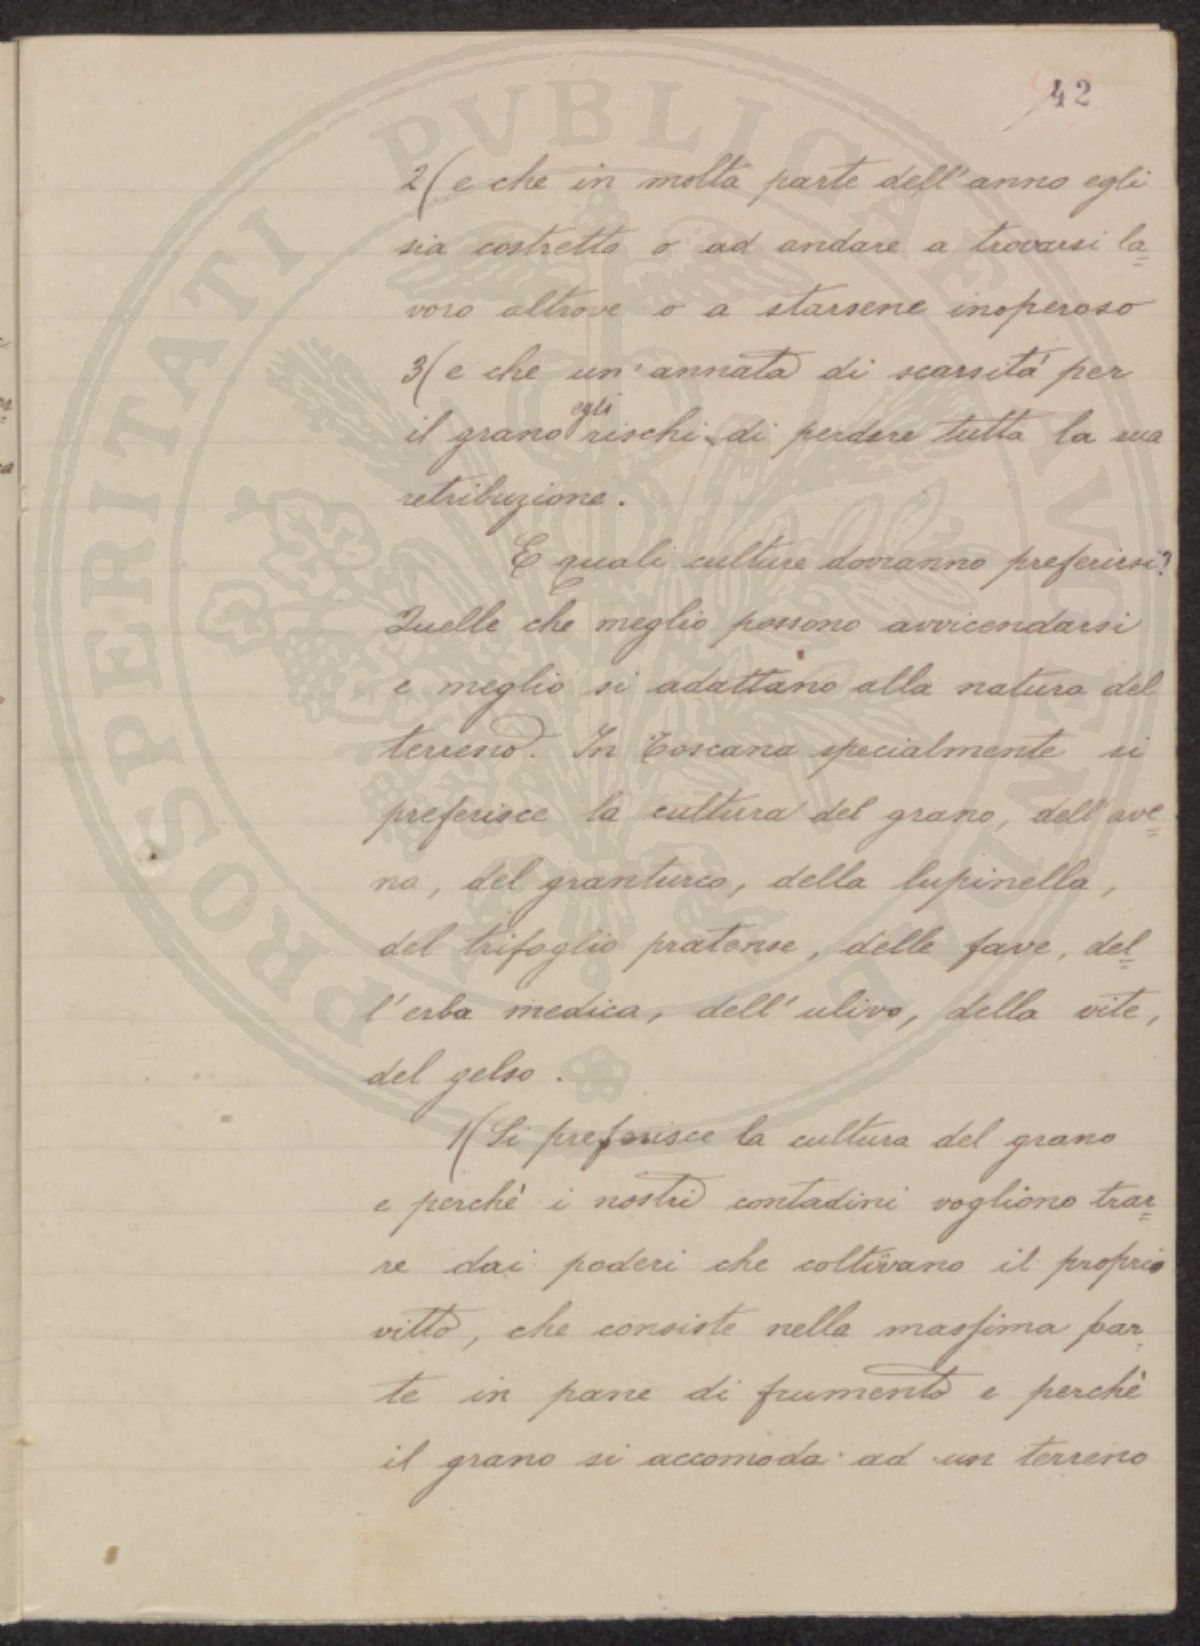 42
2( e che in molta parte dell'anno egli
sia costretto o ad andare a trovarsi la=
voro altrove o a starsene inoperoso
3( e che un'annata di scarsità per
il grano egli rischi di perdere tutta la sua
retribuzione.
E quali culture dovranno preferirsi?
Quelle che meglio possono avvicendarsi
e meglio si adattano alla natura del
terreno. In Toscana specialmente si
preferisce la cultura del grano, dell'ave=
na, del granturco, della lupinella,
del trifoglio pratense, delle fave, del=
l'erba medica, dell'ulivo, della vite,
del gelso.
1( Si preferisce la cultura del grano
e perchè i nostri contadini vogliono trar=
re dai poderi che coltivano il proprio
vitto, che consiste nella massima par=
te in pane di frumento e perchè
il grano si accomoda ad un terreno
PROSPERITATI PVBLICAE AVGENDAE